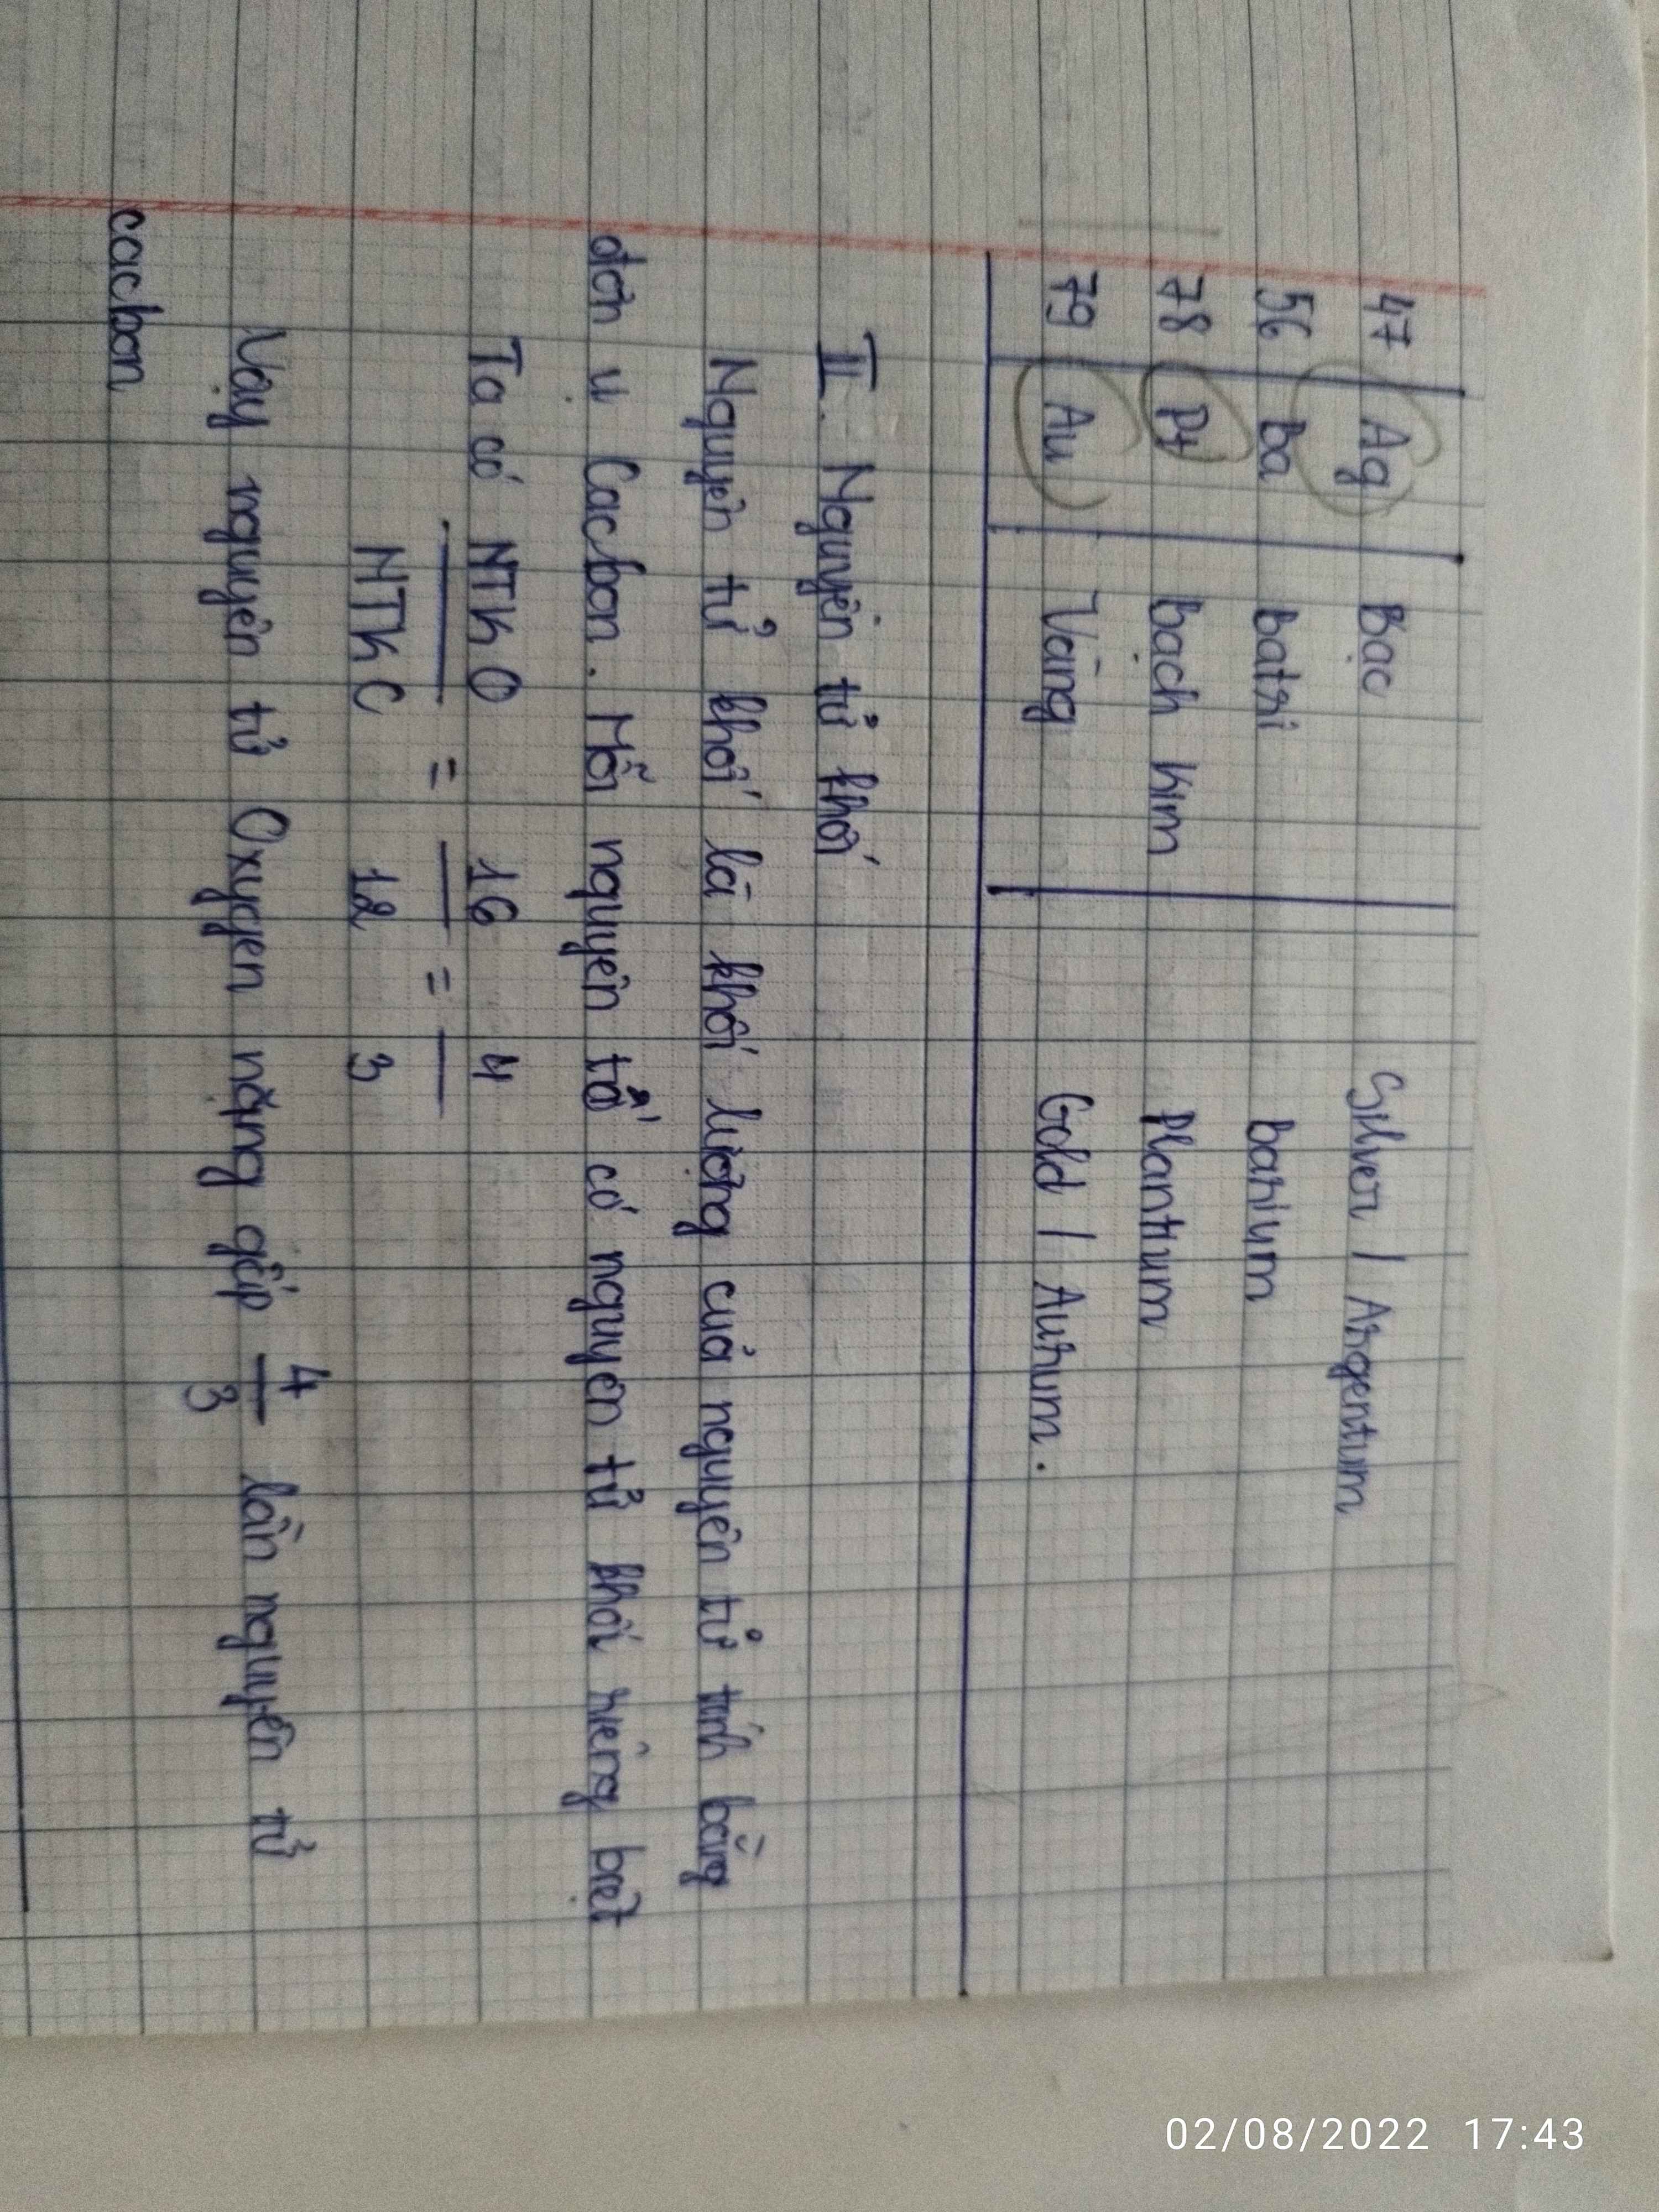 47 Ag Bạc Silver / Argentum
56 Ba Batri Barium
78 Pt Bạch Kim Plantium
79 Au Vàng Gold / Aurum.
II. Nguyên tử khối
Nguyên tử khối là khối lượng của nguyên tử tính bằng
đơn vị Cacbon. Mỗi nguyên tố có nguyên tử khối riêng biệt
Ta có NTK O / NTK C = 16 / 12 = 4 / 3
Vậy nguyên tử Oxygen nặng gấp 4/3 lần nguyên tử
cacbon
02/08/2022 17:43